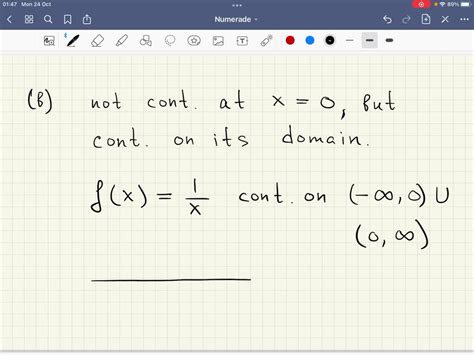 01:47 Mon 24 Oct
89%
Numerade
(b) not cont. at x = 0, but
cont. on its domain.
f(x) = 1/x cont. on (-∞, 0) U
(0, ∞)